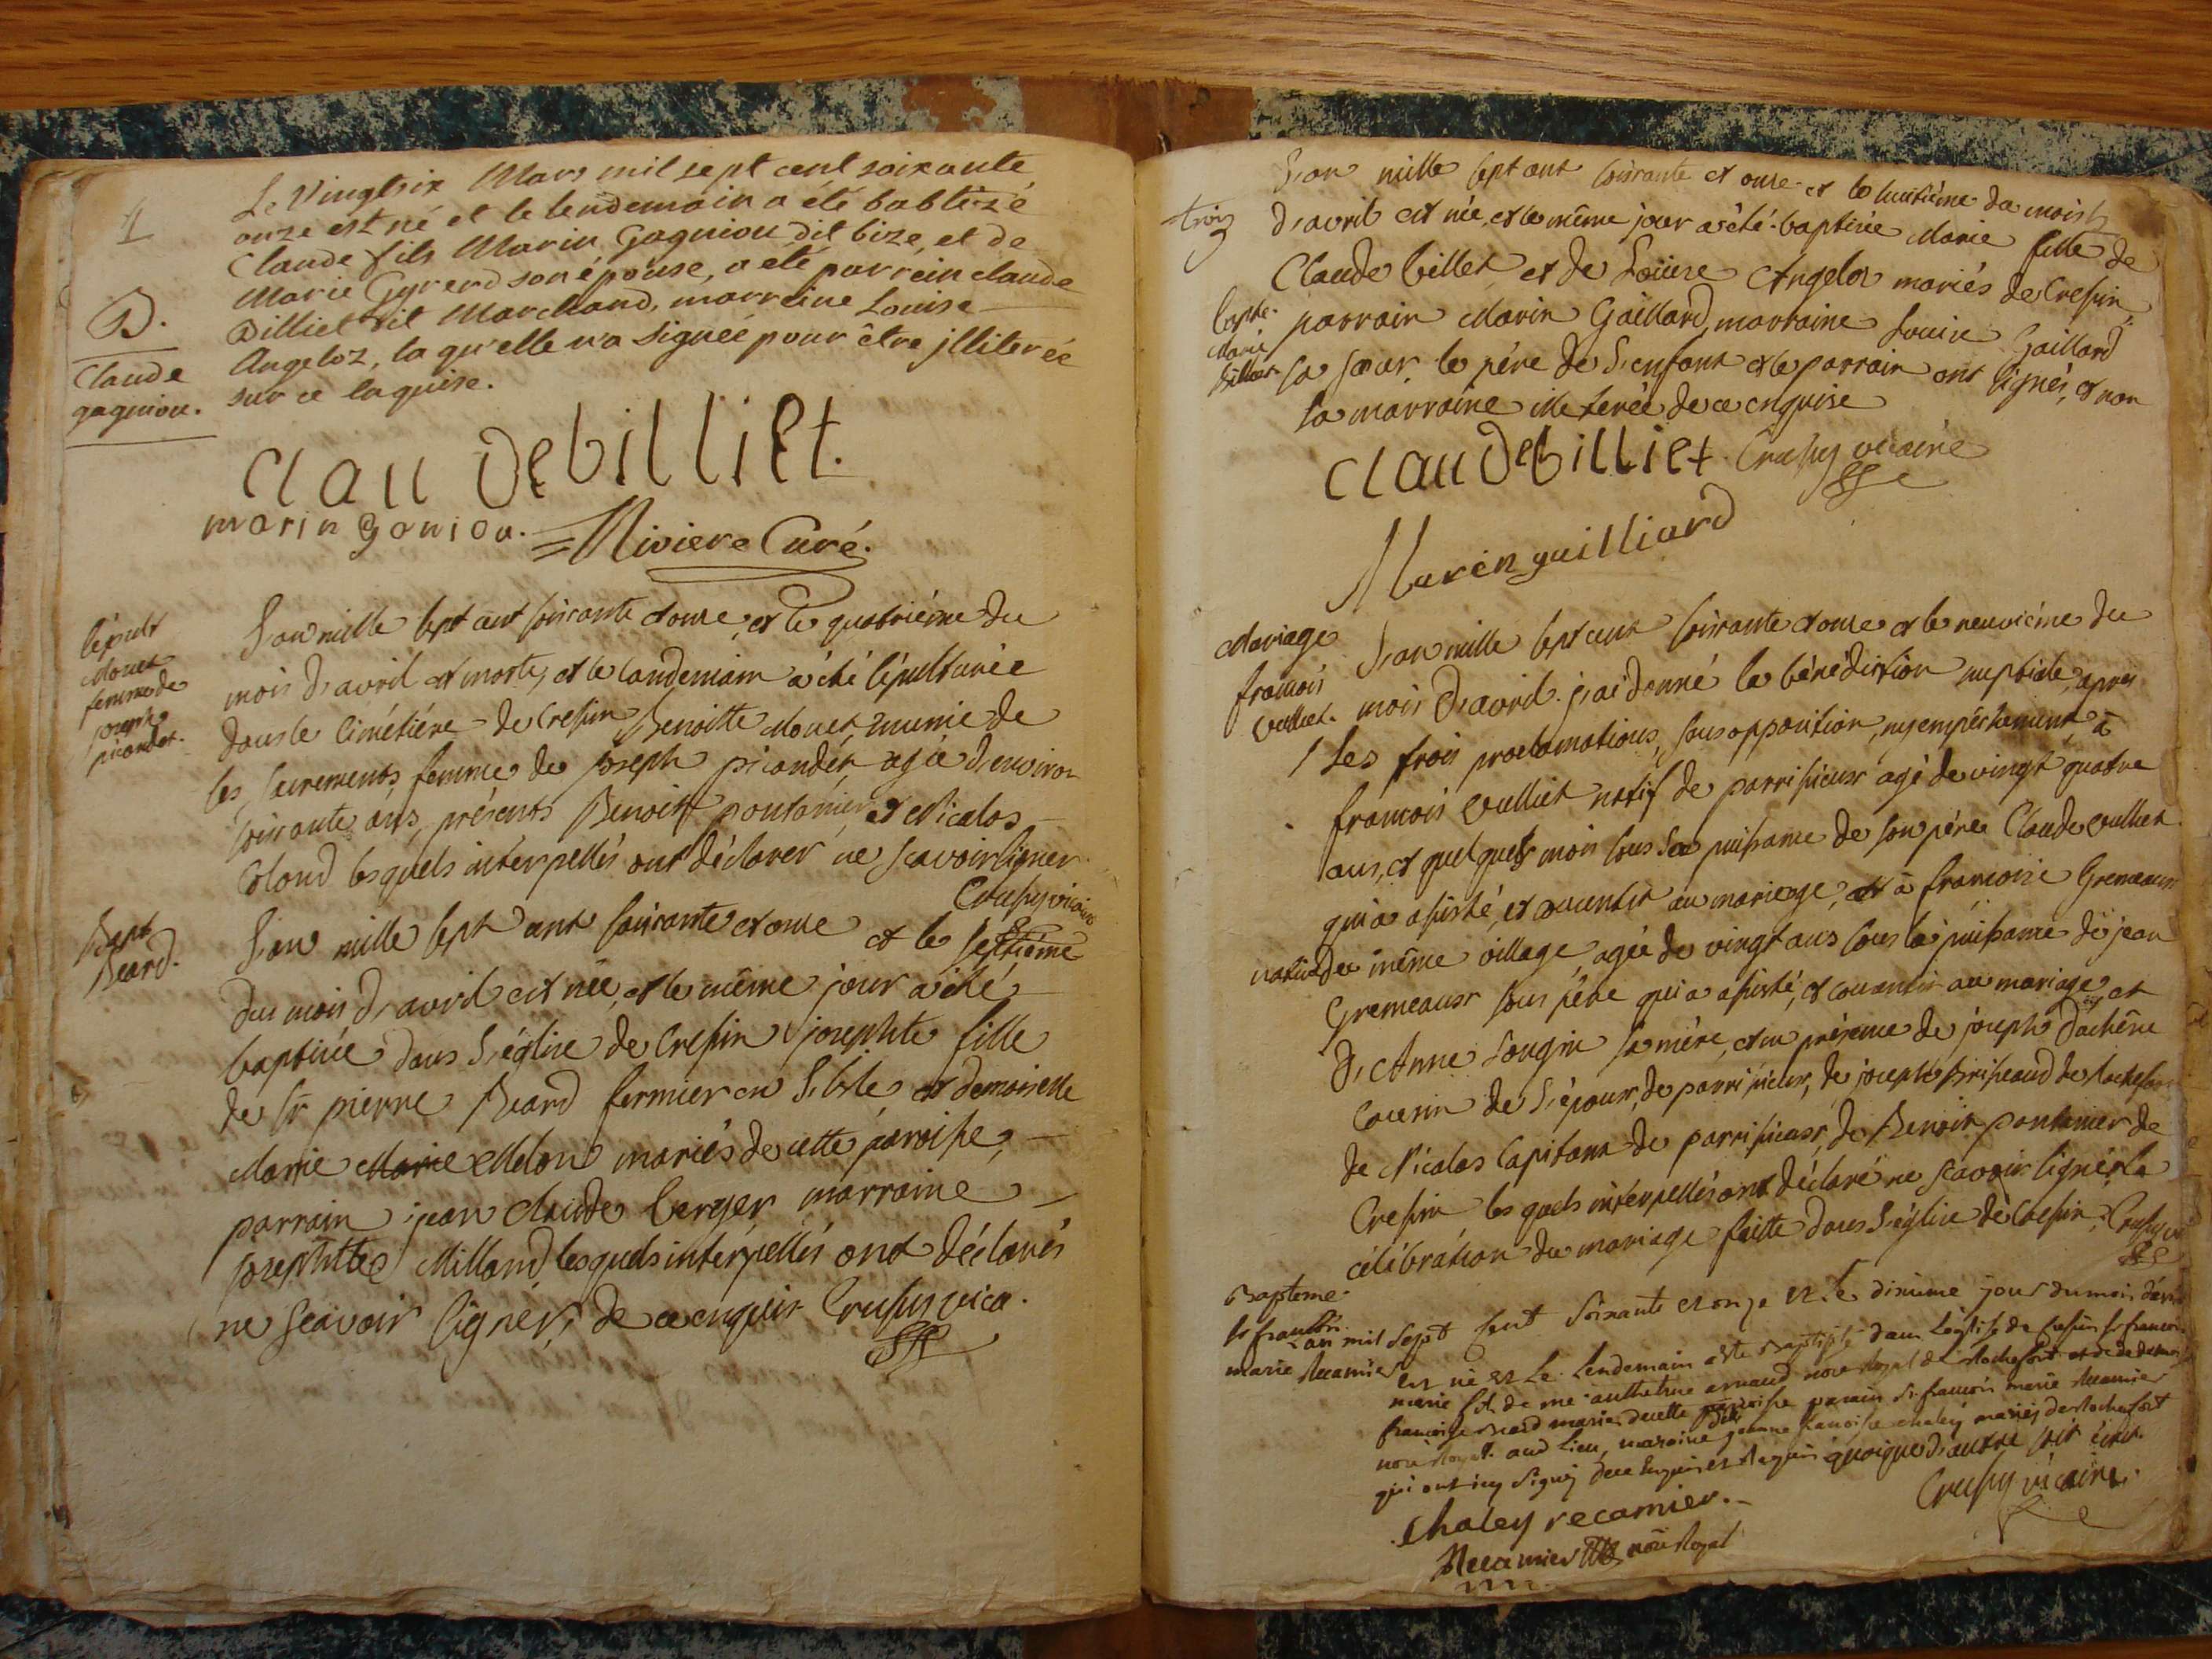 1
Le Vingtsix Mars mil sept cent soixante
onze est né et le lendemain a été babtizé
Claude fils Marin Gagniou dit bize, et de
Marie Gyrerd son épouse, a eté parrein claude
Billiet dit Marchand, marreine Louise
Angeloz, la qu'elle n'a signée pour être jlliterée
sur ce laquise.
B.
Claude
gagniou.
Clau De billiet.
marin ganiou. Riviere Curé.
sépult
Monet
femme de
joseph
picondet.
L'an mille sept cent soixante et onze, et le quatriéme du
mois d'avril est morte, et le landemain a été sépulturée
dans le cimétiére de Cressin Benoitte Monet, munie de
les sacrements, femme de joseph picondet, agée d'environ
soixante ans, présents Benoit pontanier et Nicolas
Coloud lesquels intérpellés ont déclarer ne scavoir signer.
Crussy vicaire
Bapt
Beard.
L'an mille sept cent soixante et onze et le septiéme
du mois d'avril est née, et le même jour a été
baptisée dans l'église de Cressin josephte fille
de sr pierre Beard fermier en l'isle et demoiselle
Marie Marie Melon mariés de cette paroisse,
parrain jean claude berger marraine
josephte Milland lesquels intérpellés ont déclarés
ne scavoir signer, de ce enquis Crussy vica.
trois
L'an mille sept cent soixante et onze et le huitiéme du mois
d'avril est née, et le même jour a été baptisée Marie fille de
Claude billet et de Loüise Angeloz mariés de Cressin,
parrain Marin Gaillard, marraine Louise Gaillard
sa sœur, le pére de l'enfant et le parrain ont signés, et non
la marraine illeterée de ce enquise
bapte.
Marie
billiet.
Claude billiet Crussy vicaire
Marin guilliard
Mariage
francois
Vulliet.
L'an mille sept cent soixante et onze et le neuviéme du
mois d'avril j'ai donné la bénédiction nuptiale, apres
les trois proclamations, sans opposition, ny empéchement, à
francois Vulliet natif de parrissieux agé de vingt quatre
ans, et quelques mois sous la puissance de son pére Claude vulliet
qui a assisté, et consentit au mariage, et à francoise Gremeaux
native du même village agée de vingt ans sous la puissance de jean
Gremeaux son pére qui a assisté, et consentit au mariage, et
d'Anne Longin sa mére, et en présence de joseph Duchêne
Cousin de l'époux, de parrissieux, de joseph Brissaud de Rochefort
de Nicolas Capitant de parrissieux, de Benoit pontanier de
Cressin lesquels intérpellés ont déclaré ne scavoir signer la
célébration du mariage faitte dans l'église de Cressin. Crussy vi
Baptéme
sr francois
marie Récamier
L'an mil sept cent soixante et onze et le dixiéme jour du mois d'avril
est né et le lendemain a été baptisé dans l'église de Cressin sr francois
marie fils de me anthelme arnaud nore Royal de Rochefort et de demoiselle
francoise Beard mariés de cette paroisse parain sr francois marie Recamier
nore Royal aud lieu, maraine francoise chaley mariés de Rochefort
qui ont icy signés de ce enquis et requis quoique d'autre soit écrit.
Chaley recamier. Crussy vicaire.
Recamier nore Royal